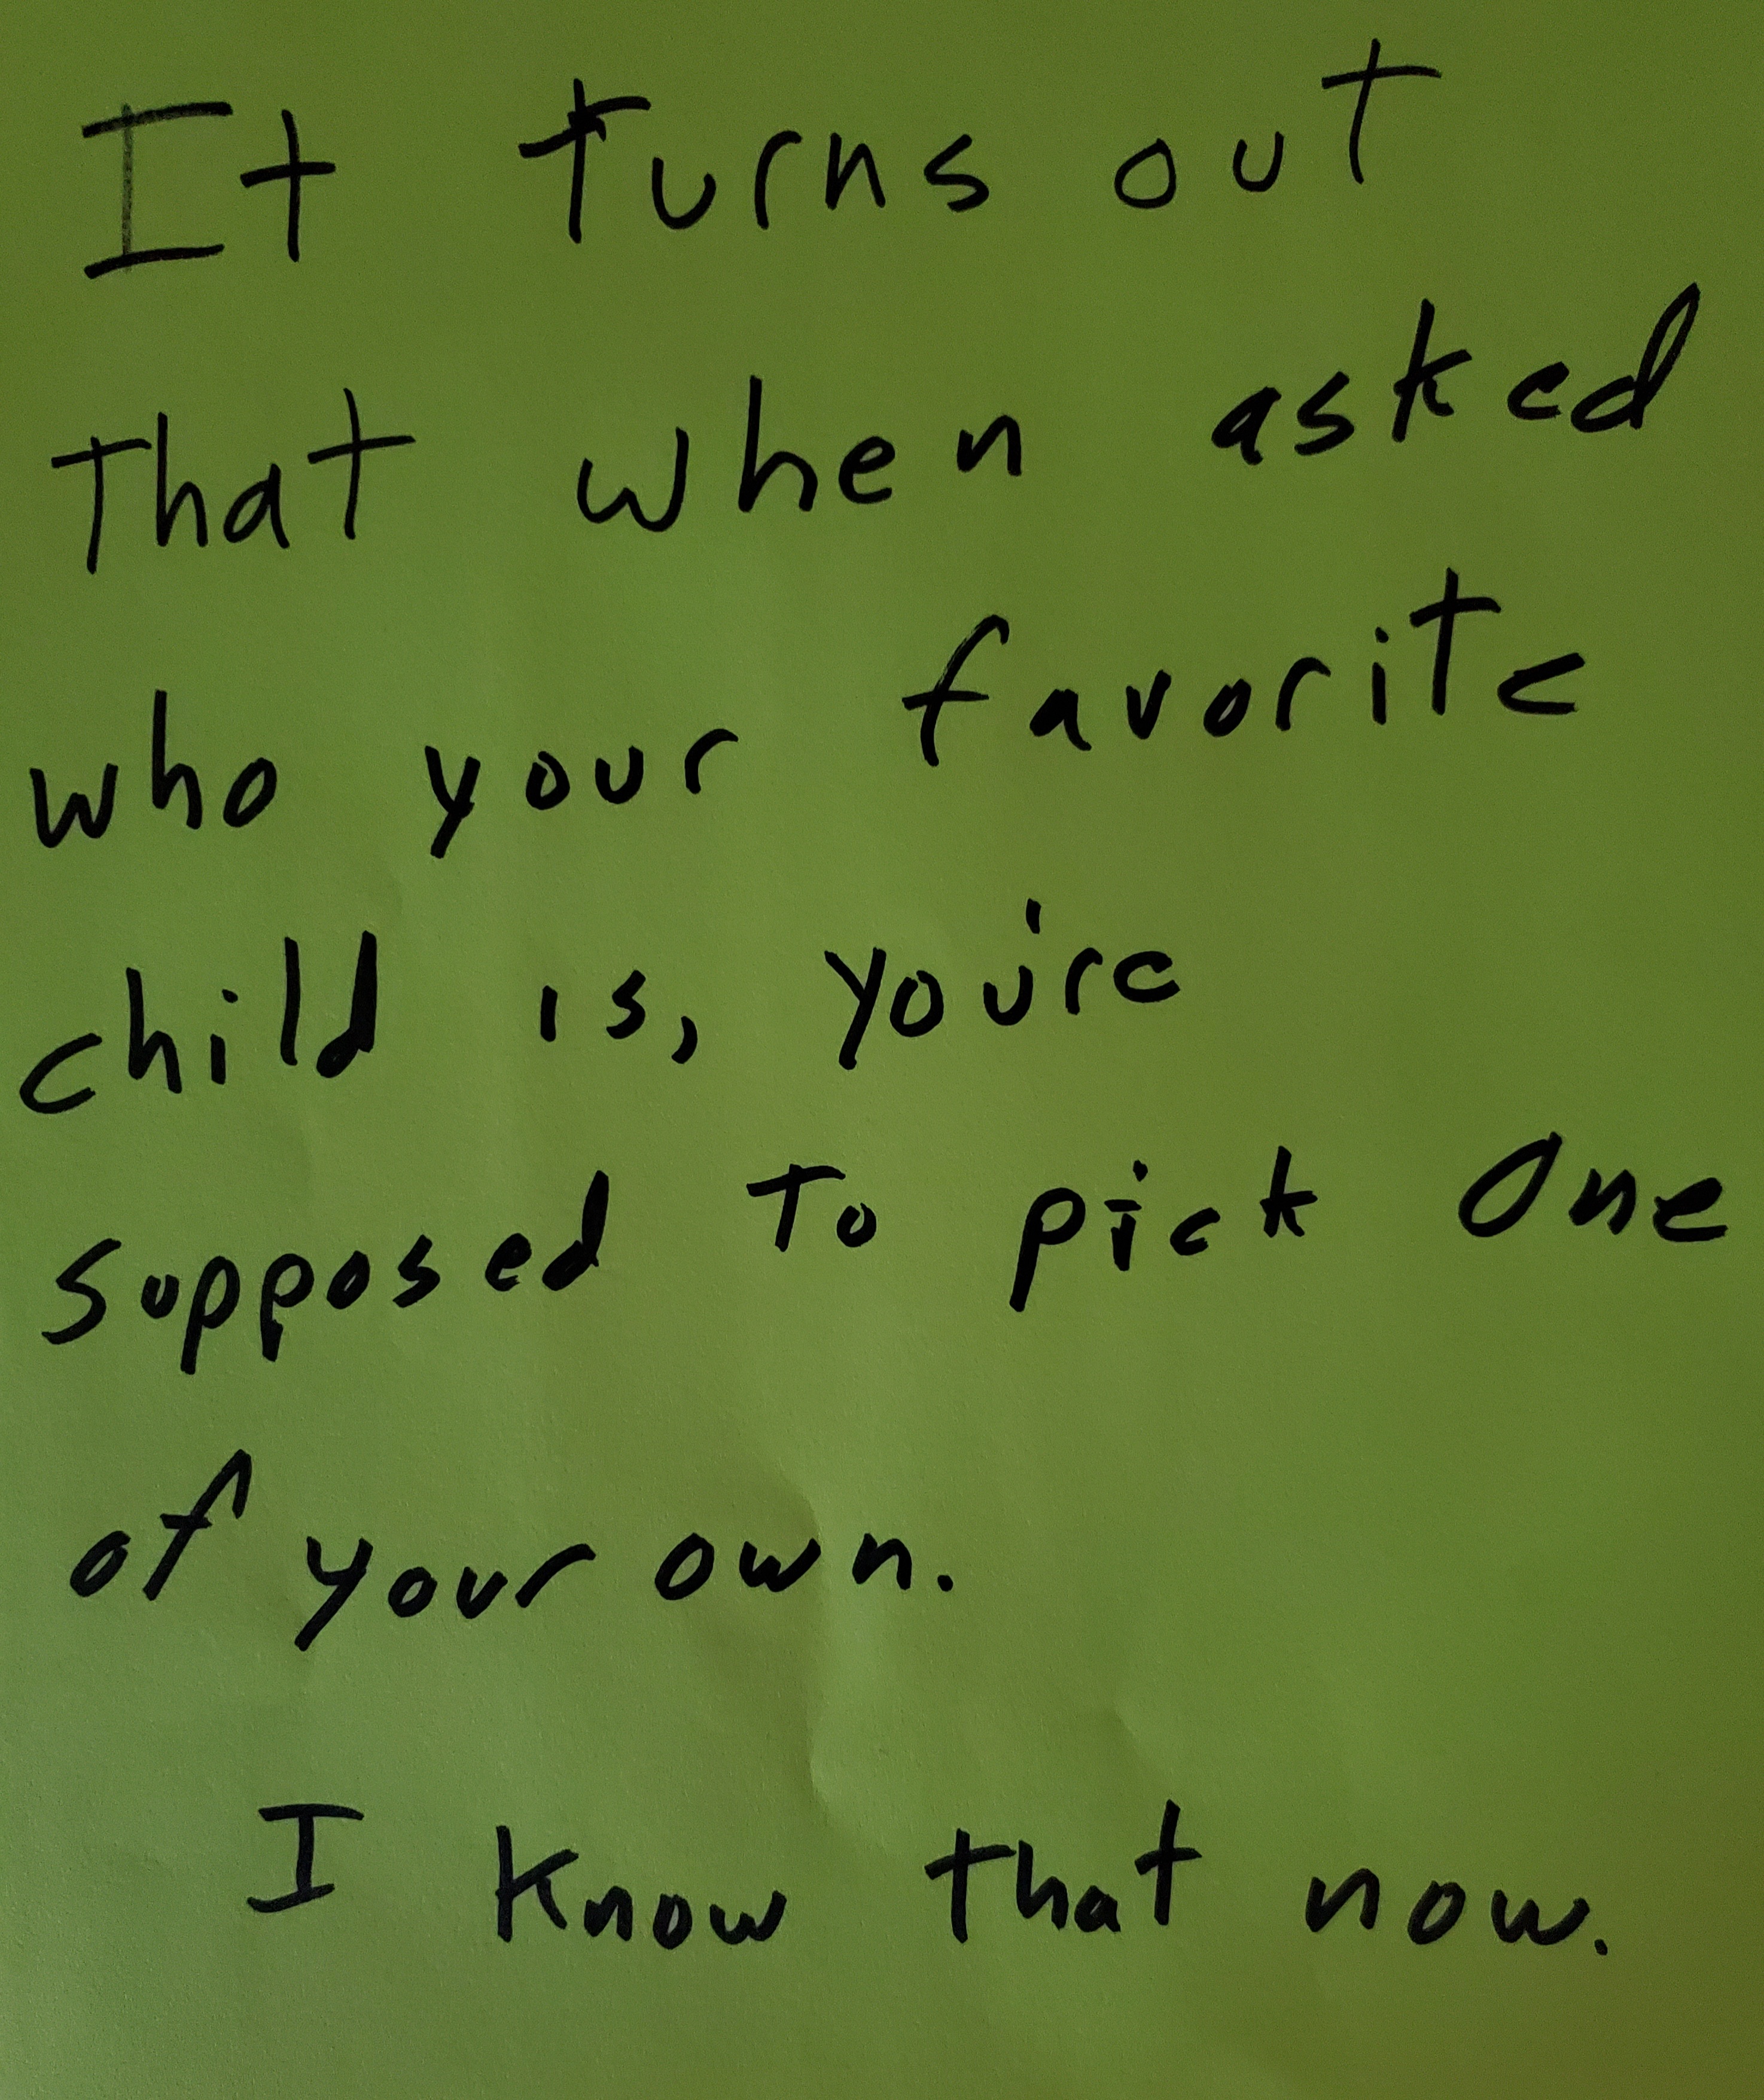 It turns out
that when asked
who your favorite
child is, you're
supposed to pick one
of your own.
I know that now.